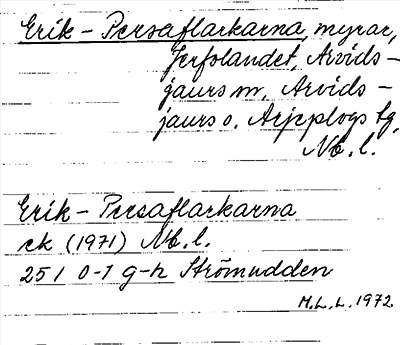 Erik-Persaflarkarna, myrar,
Jerfolandet, Arvids-
jaurs m, Arvids-
jaurs o. Arjeplogs tg,
Nb. l.
Erik-Persaflarkarna
ek (1971) Nb. l.
251 0-1 g-h Strömudden
M.L.L. 1972